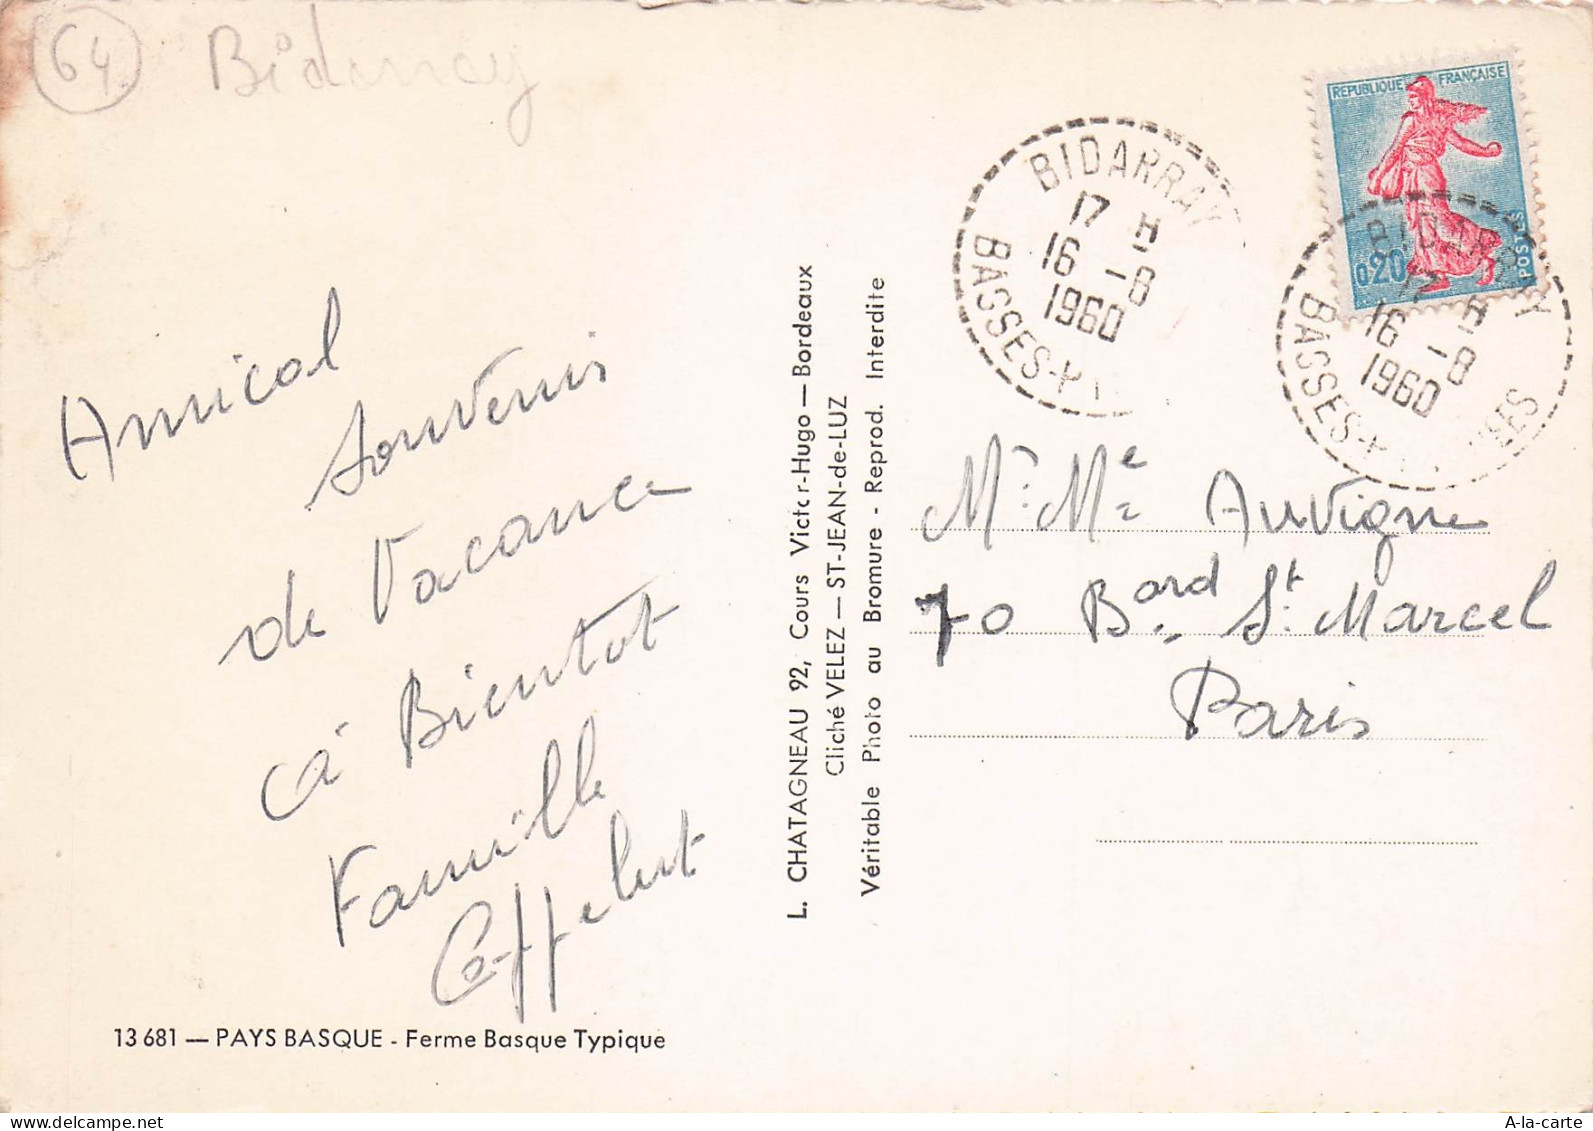 64 Bidarray
REPUBLIQUE FRANÇAISE
0,20
POSTES
BIDARRAY
17 H
16 -8
1960
BASSES-PY
BIDARRAY
17 H
16 -8
1960
BASSES-PYRENEES
Amical
souvenir
de Vacance
à Bientot
Famille
13 681 — PAYS BASQUE - Ferme Basque Typique
L. CHATAGNEAU 92, Cours Victor-Hugo — Bordeaux
Cliché VELEZ — ST-JEAN-de-LUZ
Véritable Photo au Bromure - Reprod. Interdite
Mr. Me Auvigne
70 Bard St. Marcel
Paris
A-la-carte